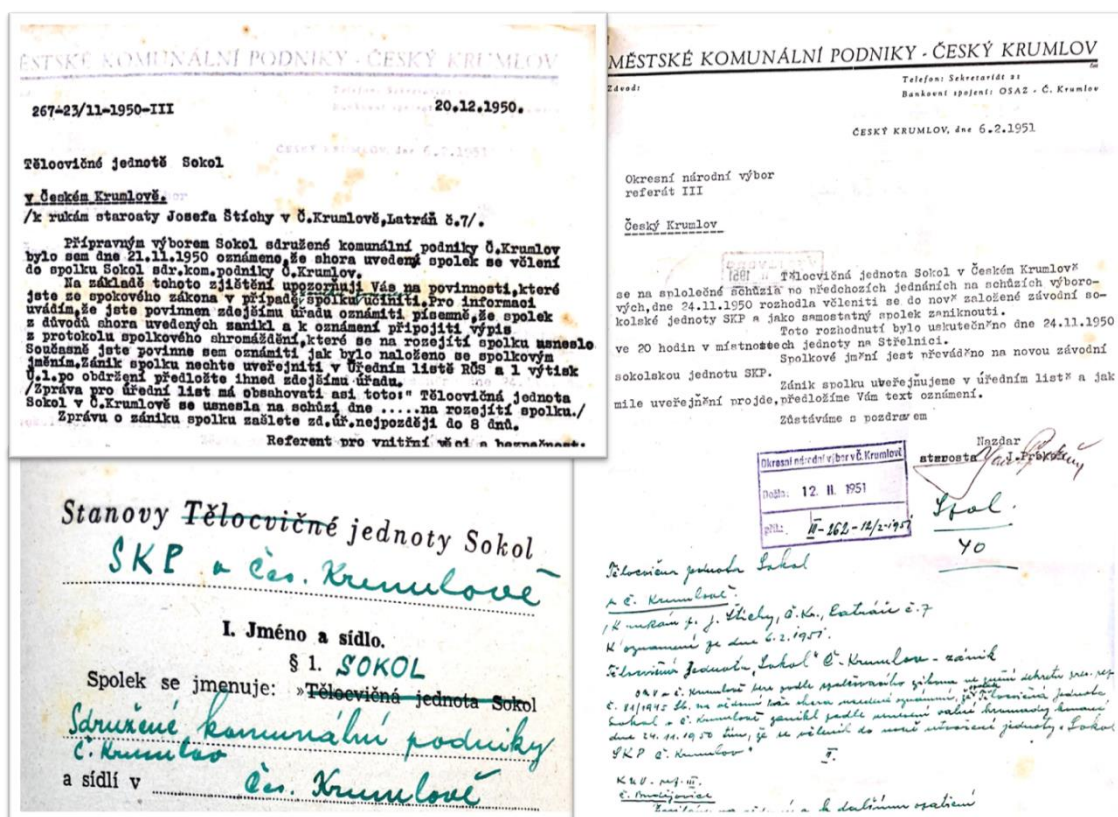 ĚSTSKÉ KOMUNÁLNÍ PODNIKY - ČESKÝ KRUMLOV
267-23/11-1950-III 20.12.1950.
ČESKÝ KRUMLOV, dne 6.2.1951
Tělocvičné jednotě Sokol
v Českém Krumlově.
/k rukám starosty Josefa Štíchy v Č.Krumlově,Latráň č.7/.
Přípravným výborem Sokol sdružené komunální podniky Č.Krumlov
bylo sem dne 21.11.1950 oznámeno,že shora uvedený spolek se včlení
do spolku Sokol sdr.kom.podniky Č.Krumlov.
Na základě tohoto zjištění upozorňuji Vás na povinnosti,které
jste ze spokového zákona v případě spolku učiniti.Pro informaci
uvádím,že jste povinnen zdejšímu úřadu oznámiti písemně,že spolek
z důvodů shora uvedených zanikl a k oznámení připojiti výpis
z protokolu spolkového shromáždění,které se na rozejití spolku usneslo
Současně jste povinne sem oznámiti jak bylo naloženo se spolkovým
jměním.Zánik spolku nechte uveřejniti v Úředním listě RČS a 1 výtisk
Ú.l.po obdržení předložte ihned zdejšímu úřadu.
/Zpráva pro úřední list má obsahovati asi toto:" Tělocvičná jednota
Sokol v Č.Krumlově se usnesla na schůzi dne .....na rozejití spolku./
Zprávu o zániku spolku zašlete zd.úř.nejpozději do 8 dnů.
Referent pro vnitřní věci a bezpečnost:
Stanovy Tělocvičné jednoty Sokol
SKP v Čes. Krumlově
I. Jméno a sídlo.
§ 1. SOKOL
Spolek se jmenuje: »Tělocvičná jednota Sokol
Sdružené komunální podniky
Č. Krumlov
a sídlí v Čes. Krumlově
MĚSTSKÉ KOMUNÁLNÍ PODNIKY - ČESKÝ KRUMLOV
Závod:
Telefon: Sekretariát 21
Bankovní spojení: OSAZ - Č. Krumlov
ČESKÝ KRUMLOV, dne 6.2.1951
Okresní národní výbor
referát III
Český Krumlov
Tělocvičná jednota Sokol v Českém Krumlově
se na splolečné schůzi po předchozích jednáních na schůzích výboro-
vých,dne 24.11.1950 rozhodla včleniti se do nově založené závodní so-
kolské jednoty SKP a jako samostatný spolek zaniknouti.
Toto rozhodnutí bylo uskutečněno dne 24.11.1950
ve 20 hodin v místnostech jednoty na Střelnici.
Spolkové jmění jest převáděno na novou závodní
sokolskou jednotu SKP.
Zánik spolku uveřejnujeme v úředním listě a jak
mile uveřejnění projde,předložíme Vám text oznámení.
Zůstáváme s pozdravem
Nazdar
starosta
Okresní národní výbor v Č. Krumlově
Došlo: 12. II. 1951
příl.: III-262-12/2-1951
Spol.
40
Tělocvičná jednota Sokol
v Č. Krumlově.
/K rukám p. J. Štíchy, Č.Kr., Latráň č. 7
K oznámení ze dne 6.2.1951.
Tělocvičná Jednota „Sokol" Č. Krumlov - zánik
ONV v Č. Krumlově bere podle spolčovacího zákona
č. 81/1945 Sb. na vědomí Tělocvičná jednota
Sokol v Č. Krumlově zanikl podle usnesení valné hromady konané
dne 24.11.1950 tím, že se včlenil do nově utvořené jednoty „Sokol
SKP Č. Krumlov"
II.
KNV - ref. III.
Č. Budějovice
na vědomí a k dalšímu opatření